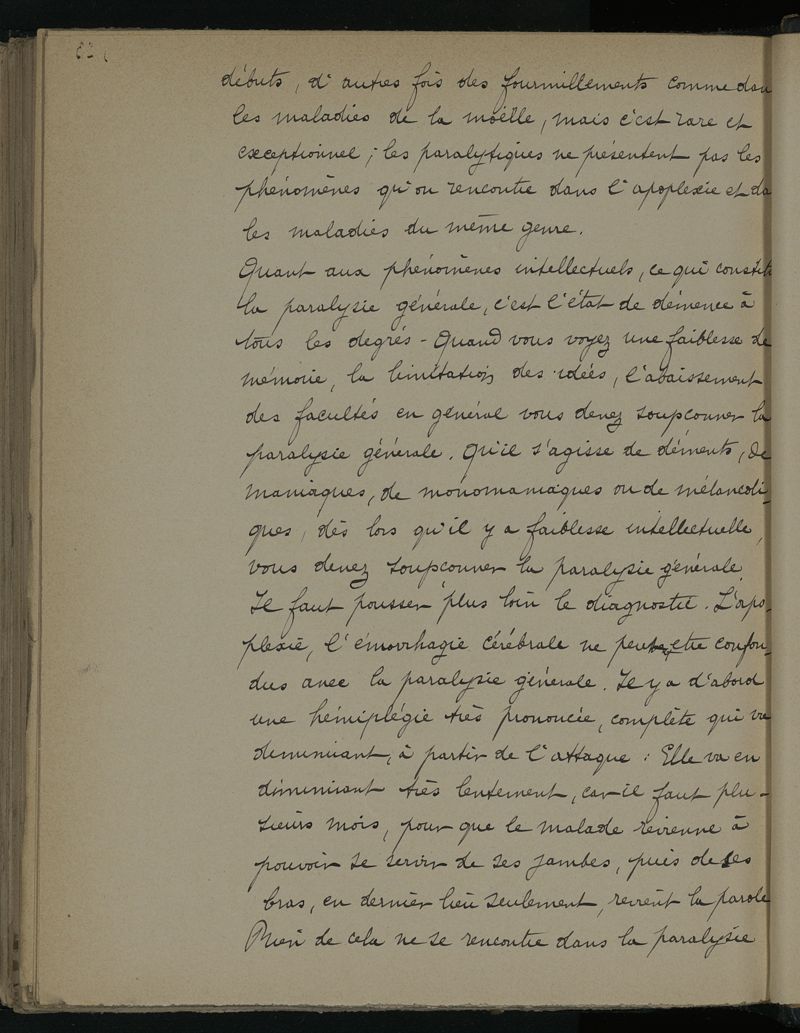 débuts, d'autres fois des fourmillements comme dan
les maladies de la moëlle, mais c'est rare et
exceptionnel; les paralytiques ne présentent pas les
phénomènes qu'on rencontre dans l'apoplexie et da
les maladies du même genre.
Quant aux phénomènes intellectuels, ce qui constitu
la paralysie générale, c'est l'état de démence à
tous les degrés - Quand vous voyez une faiblesse de
mémoire, la limitation des idées, l'abaissement
des facultés en général vous devez soupçonner la
paralysie générale. Qu'il s'agisse de déments, de
maniaques, de monomaniaques ou de mélancoli-
ques, dès lors qu'il y a faiblesse intellectuelle,
vous devez soupçonner la paralysie générale.
Il faut pousser plus loin le diagnostic. L'apo-
plexie, l'émorrhagie cérébrale ne peuvent être confon-
dus avec la paralysie générale. Il y a d'abord
une hémiplégie très prononcée, complète qui va
diminuant, à partir de l'attaque : Elle va en
diminuant très lentement, car il faut plu-
sieurs mois, pour que le malade revienne à
pouvoir se servir de ses jambes, puis de ses
bras, en dernier lieu seulement, revient la parole
Rien de cela ne se rencontre dans la paralysie